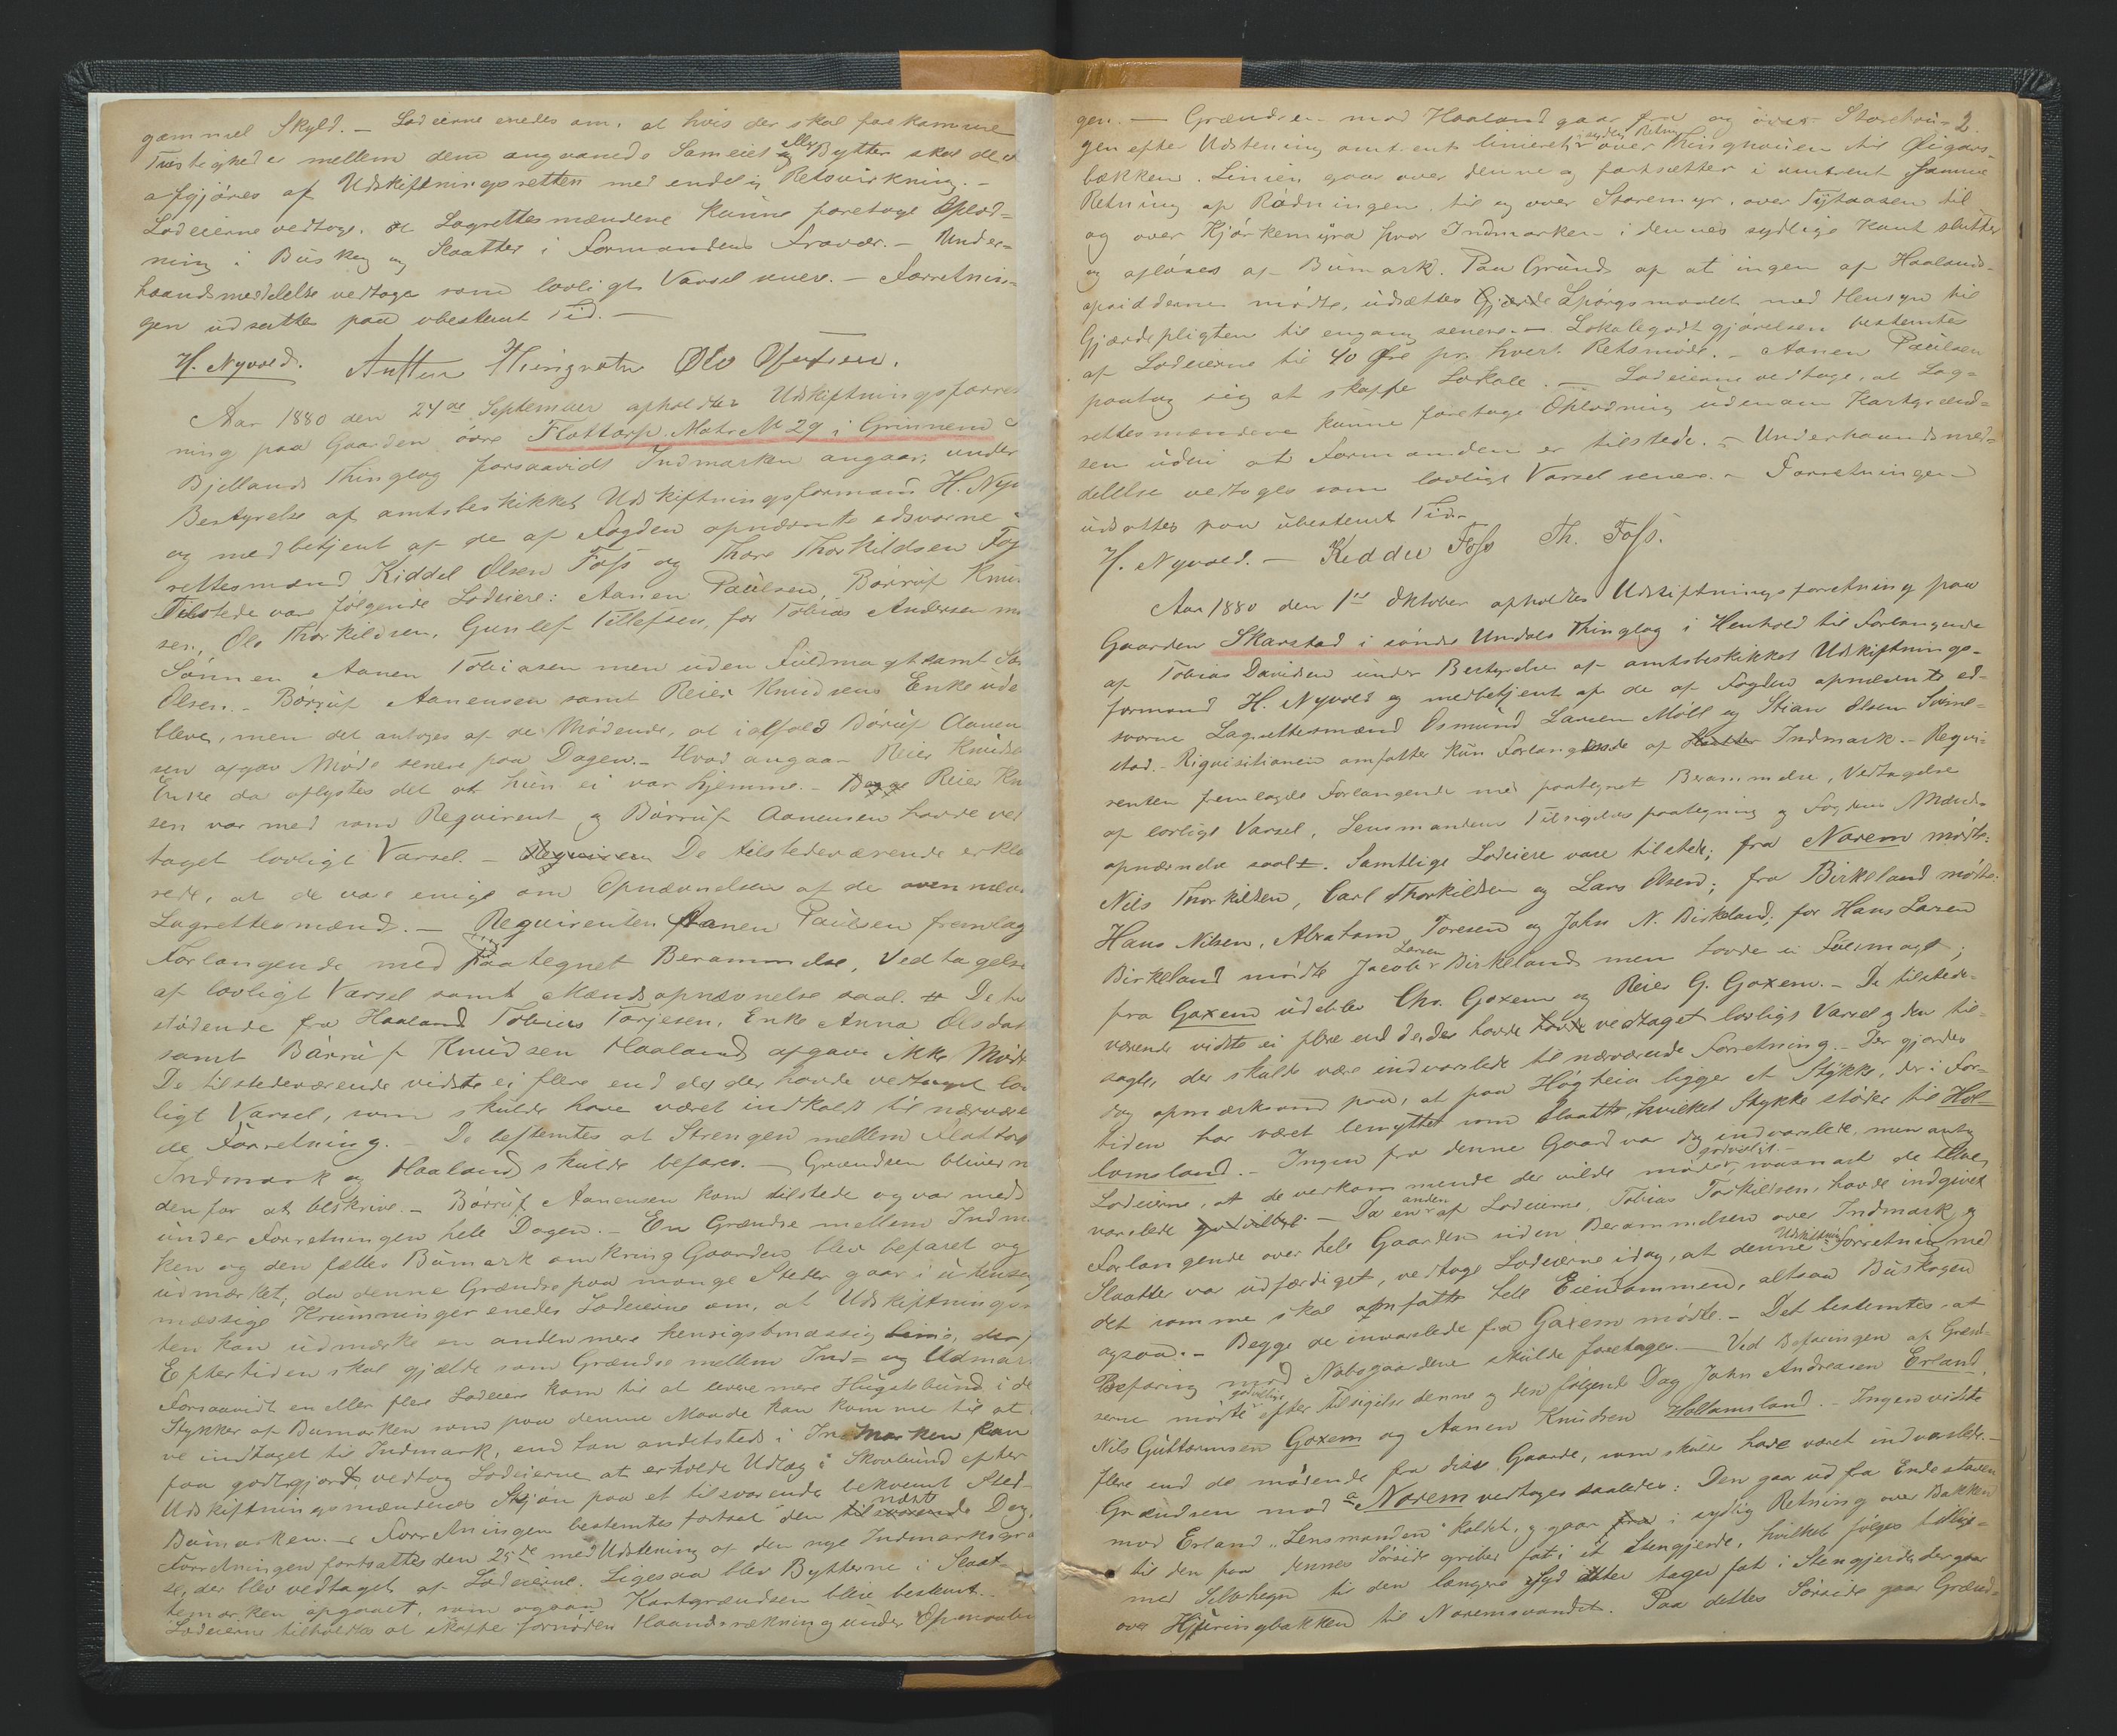 gammel Skyld. — Lodeierne enedes om, at hvis der skal forekomme
Tvistigheder mellem dem angaaende Sameiet eller Bytter skal det
afgjøres af Udskiftningsretten med endelig Retsvirkning. —
Lodeierne vedtoge, at Lagrettesmændene kunne foretage Oplod=
ning i Buskog og Slaatter i Formandens Fravær. — Under=
haandsmeddelelse vedtoges som lovligt Varsel senere. — Forretnin=
gen udsattes paa ubestemt Tid. —
H. Nyvold.
Aar 1880 den 24de September afholdtes Udskiftningsforret
ning paa Gaarden øvre Flottorp Matr No 29 i Grinnem
Bjellands Thinglag forsaavidt Indmarken angaar, under
Bestyrelse af amtsbeskikket Udskiftningsformand H. Nyv
og medbetjent af de af Fogden opnævnte edsvorne
rettesmænd Kiddel Olsen Foss og Thore Thorkildsen Fos
Tilstede vare følgende Lodeiere: Aanen Paulsen, Børruf Knu
sen, Ole Thorkildsen, Gunlef Tellefsen, for Tobias Andersen mø
Sønnen Aanen Tobiasen men uden Fuldmagt samt
Olsen. — Børruf Aanensen samt Reier Knudsens Enke ude
bleve, men det antoges af de Mødende, at ialfald Børuf Aanen
sen afgav Møde senere paa Dagen. — Hvad angaar Reier Knudse
Enke da oplystes det at hun ei var hjemme. — Reier Kn
sen var med som Requirent og Børruf Aanensen havde ved
taget lovligt Varsel. — Requiren De tilstedeværende erklæ
rede, at de vare enige om Opnævnelsen af de ovennævn
Lagrettesmænd. — Requirenten Aanen Paulsen fremlag
Forlangende med paategnet Berammelse, Vedtagelse
af lovligt Varsel samt Mandsopnævnelse saal. # De til
stødende fra Haaland Tobias Tarjesen, Enke Anna Olsdat
samt Børruf Knudsen Haaland afgave ikke Møde
De tilstedeværende vidste ei flere end de, der havde vedtaget lov
ligt Varsel, som skulde have været indkaldt til nærvære
de Forretning. — De bestemtes at Strengen mellem Flottor
Indmark og Haaland skulde befares. — Grændsen bliver n
denfor at beskrive. — Børruf Aanensen kom tilstede og var med
under Forretningen hele Dagen. — En Grændse mellem Indm
ken og den fælles Bumark omkring Gaarden blev befaret og
udmærket; da denne Grændse paa mange Steder gaar i uhensig
mæssige Krumninger enedes Lodeierne om, at Udskiftningsr
ten kan udmærke en anden mere hensigtsmæssig Linie, der
Eftertiden skal gjælde som Grændse mellem Ind= og Udmar
Forsaavidt en eller flere Lodeiere kom til at levere mere Hugstbund i de
Stykker af Bumarken som paa denne Maade kan komme til at
ve indtaget til Indmark, end han andetsteds i Indmarken kan
faa godtgjort, vedtog Lodeierne at erholde Udlæg i Skovbund efter
Udskiftningsmændenes Skjøn paa et tilsvarende bekvemt Sted
Bumarken. — Forretningen bestemtes fortsat den næste Dag.
Forretningen fortsattes den 25de med Udstening af den nye Indmarksgræ
se, der blev vedtaget af Lodeierne. Ligesaa blev Bytterne i Slaat=
temarken opgaaet, som ogsaa Kartgrændsen blev bestemt.
Lodeierne tilholdtes at skaffe fornøden Haandsrækning under Opmaalin
2
gen. — Grændsen mod Haaland gaar fra og over Storehou=
gen efter Udstening omtrent linieret i sydlig Retning over Thinghouen til
bækken. Linien gaar over denne og fortsætter i omtrent samme
Retning af Rødningen til og over Storemyr, over Tytaasen til
og over Kjørkemyra hvor Indmarken i dennes sydlige Kant slutter
og afløses af Bumark. Paa Grund af at ingen af Haalands=
opsidderne mødte, udsættes Gjærde Spørgsmaalet med Hensyn til
Gjærdepligten til engang senere. — Lokalegodtgjørelsen bestemtes
af Lodeierne til 40 Øre pr. hvert Retsmøde. — Aanen Paulsen
paatog sig at skaffe Lokale. — Lodeierne vedtoge, at Lag=
rettesmændene kunne foretage Oplodning udenom Kartgrænd=
sen uden at Formanden er tilstede. — Underhaandsmed=
delelse vedtoges som lovligt Varsel senere. — Forretningen
udsattes paa ubestemt Tid.
H. Nyvold. — Kiddel Foss Th. Foss.
Aar 1880 den 1ste Oktober afholdtes Udskiftningsforretning paa
Gaarden Skarstad i søndre Undals Thinglag i Henhold til Forlangende
af Tobias Davidsen under Bestyrelse af amtsbeskikket Udskiftnings=
formand H. Nyvold og medbetjent af de af Fogden opnævnte ed=
svorne Lagrettesmænd Osmund Larsen Möll og Stian Olsen Svine=
stad. — Riquisitionen omfatter kun Forlangende af Indmark. — Requi=
renten fremlagde Forlangende med paategnet Berammelse, Vedtagelse
af lovligt Varsel, Lensmandens Tilsigelsespaategning og Fogdens Mands=
opnævnelse saal. Samtlige Lodeiere vare tilstede; fra Norem mødte:
Nils Thorkildsen, Carl Thorkildsen og Lars Olsen; fra Birkeland mødte:
Hans Nilsen, Abraham Toresen og John N. Birkeland; for Hans Larsen
Birkeland mødte Jacob Larsen Birkeland men havde ei Fuldmagt;
fra Goxem udeblev Chr. Goxem og Reier G. Goxem. — De tilstede=
værende vidste ei flere end de, der havde havde vedtaget lovligt Varsel og den til=
sagte, der skulde være indvarslede til nærværende Forretning. — Der gjordes
dog opmærksom paa, at paa Høgheia ligger et Stykke, der i For=
tiden har været benyttet som Slaatte, hvilket Stykke støder til Hol=
lomsland. — Ingen fra denne Gaard var dog indvarslede, men antog
Lodeierne, at de vedkommende der vilde møde godvilligt, saasnart de bleve
varslede godvilligt. — Da en anden af Lodeierne, Tobias Torkildsen, havde indgivet
Forlangende over hele Gaarden siden Berammelsen over Indmark og
Slaatter var udfærdiget, vedtoge Lodeierne idag, at denne Udskiftningsforretning med
det samme skal omfatte hele Eiendommen, altsaa Buskogen
ogsaa. — Begge de indvarslede fra Goxem mødte. — Det bestemtes at
Befaring mod Nabogaardene skulde foretages. — Ved Befaringen af Grænd=
serne mødte godvillig efter Tilsigelse denne og den følgende Dag John Andreasen Erland,
Nils Guttormsen Goxem og Aanen Knudsen Hollamsland. — Ingen vidste
flere end de mødende fra disse Gaarde, som skulde have været indvarslede. —
Grændsen mod a Norem vedtoges saaledes: Den gaar ud fra Endestaven
mod Erland „Lensmanden" kaldet, og gaar fra i sydlig Retning over Bakken
til den paa dennes Sørside griber fat i et Stengjerde, hvilket følges tillige=
med Selvhegn til den længere Syd atter tager fat i Stengjerde, der gaar
over Hjuringbakken til Noremsvandet. Paa dettes Sørside gaar Grænd=